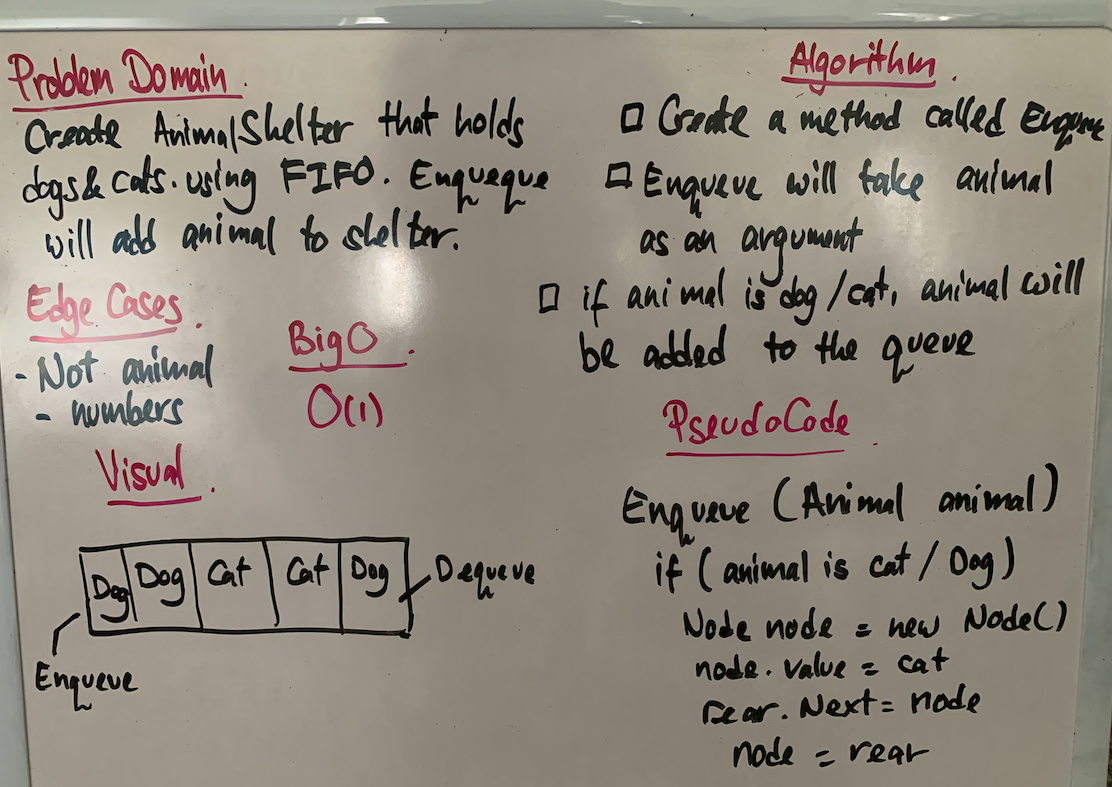 Problem Domain.
Create AnimalShelter that holds
dogs & cats. using FIFO. Enqueque
will add animal to shelter.
Edge Cases.
- Not animal
- numbers
Big O.
O(1)
Visual.
Dog Dog Cat Cat Dog
Dequeue
Enqueue
Algorithm.
Create a method called Enqueue
Enqueue will take animal
as an argument
if animal is dog/cat, animal will
be added to the queue
PseudoCode.
Enqueue (Animal animal)
if (animal is cat / Dog)
Node node = new Node()
node.value = cat
rear.Next = node
node = rear